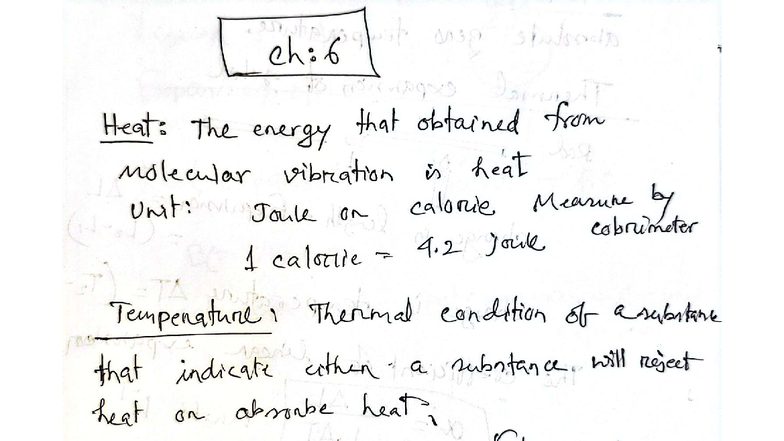 Ch: 6
Heat: The energy that obtained from
molecular vibration is heat
Unit: Joule or calorie Measure by
calorimeter
1 calorie = 4.2 Joule
Temperature: Thermal condition of a substance
that indicate either a substance will reject
heat or absorbe heat,